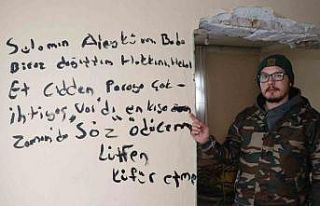 Selamın Aleyküm Baba
Biraz dağıttım Hakkını Helal
Et Cidden Paraya Çok
ihtiyaç Vardı en kısa
Zaman'da Söz ödücem
Lütfen
küfür etme